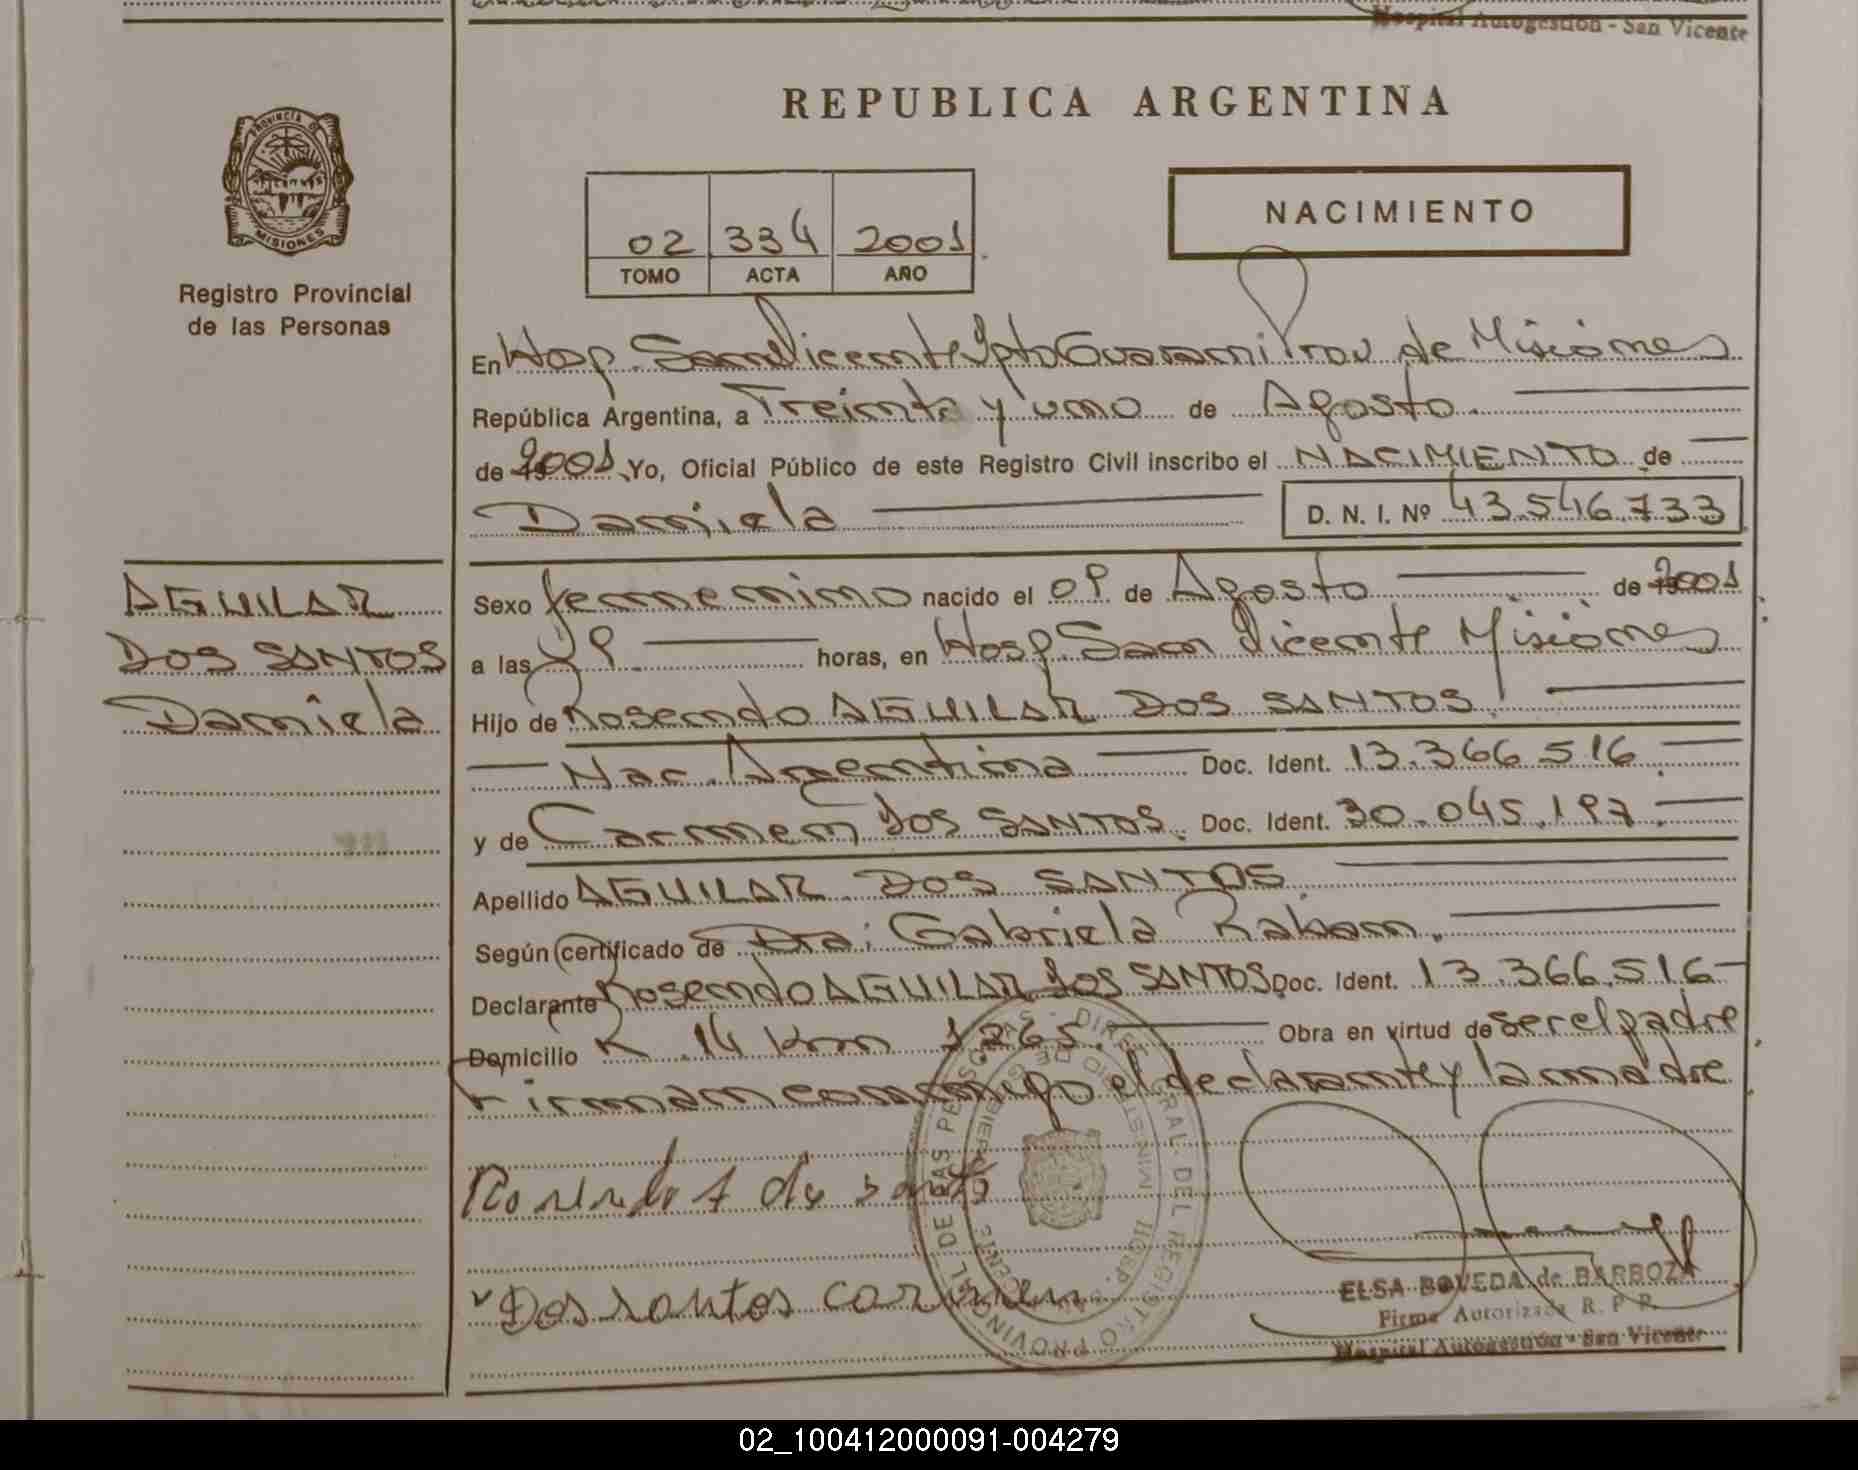 Hospital Autogestión - San Vicente
REPUBLICA ARGENTINA
PROVINCIA DE
MISIONES
Registro Provincial
de las Personas
02 334 2001
TOMO ACTA AÑO
NACIMIENTO
En Hosp. San Vicente Dpto Guarani Prov. de Misiones
República Argentina, a Treinta y uno de Agosto
de 2001 Yo, Oficial Público de este Registro Civil inscribo el NACIMIENTO de
Daniela D. N. I. Nº 43.546.733
AGUILAR
DOS SANTOS
Daniela
Sexo femenino nacido el 09 de Agosto de 2001
a las 9 horas, en Hosp. San Vicente Misiones
Hijo de Rosendo AGUILAR DOS SANTOS.
Nac. Argentina Doc. Ident. 13.366.516.
y de Carmen DOS SANTOS. Doc. Ident. 30.045.197.
Apellido AGUILAR DOS SANTOS.
Según certificado de Dra. Gabriela
Declarante Rosendo AGUILAR DOS SANTOS Doc. Ident. 13.366.516
Domicilio R. 14 Km 1265. Obra en virtud de ser el padre
Firman conmigo el declarante y la madre
Rosendo A dos santos
Dos santos carmen
DIRECCION GENERAL DEL REGISTRO PROVINCIAL DE LAS PERSONAS
MINISTERIO DE GOBIERNO
ELSA BOVEDA de BARBOZA
Firma Autorizada R. P. P.
Hospital Autogestión - San Vicente
02_100412000091-004279